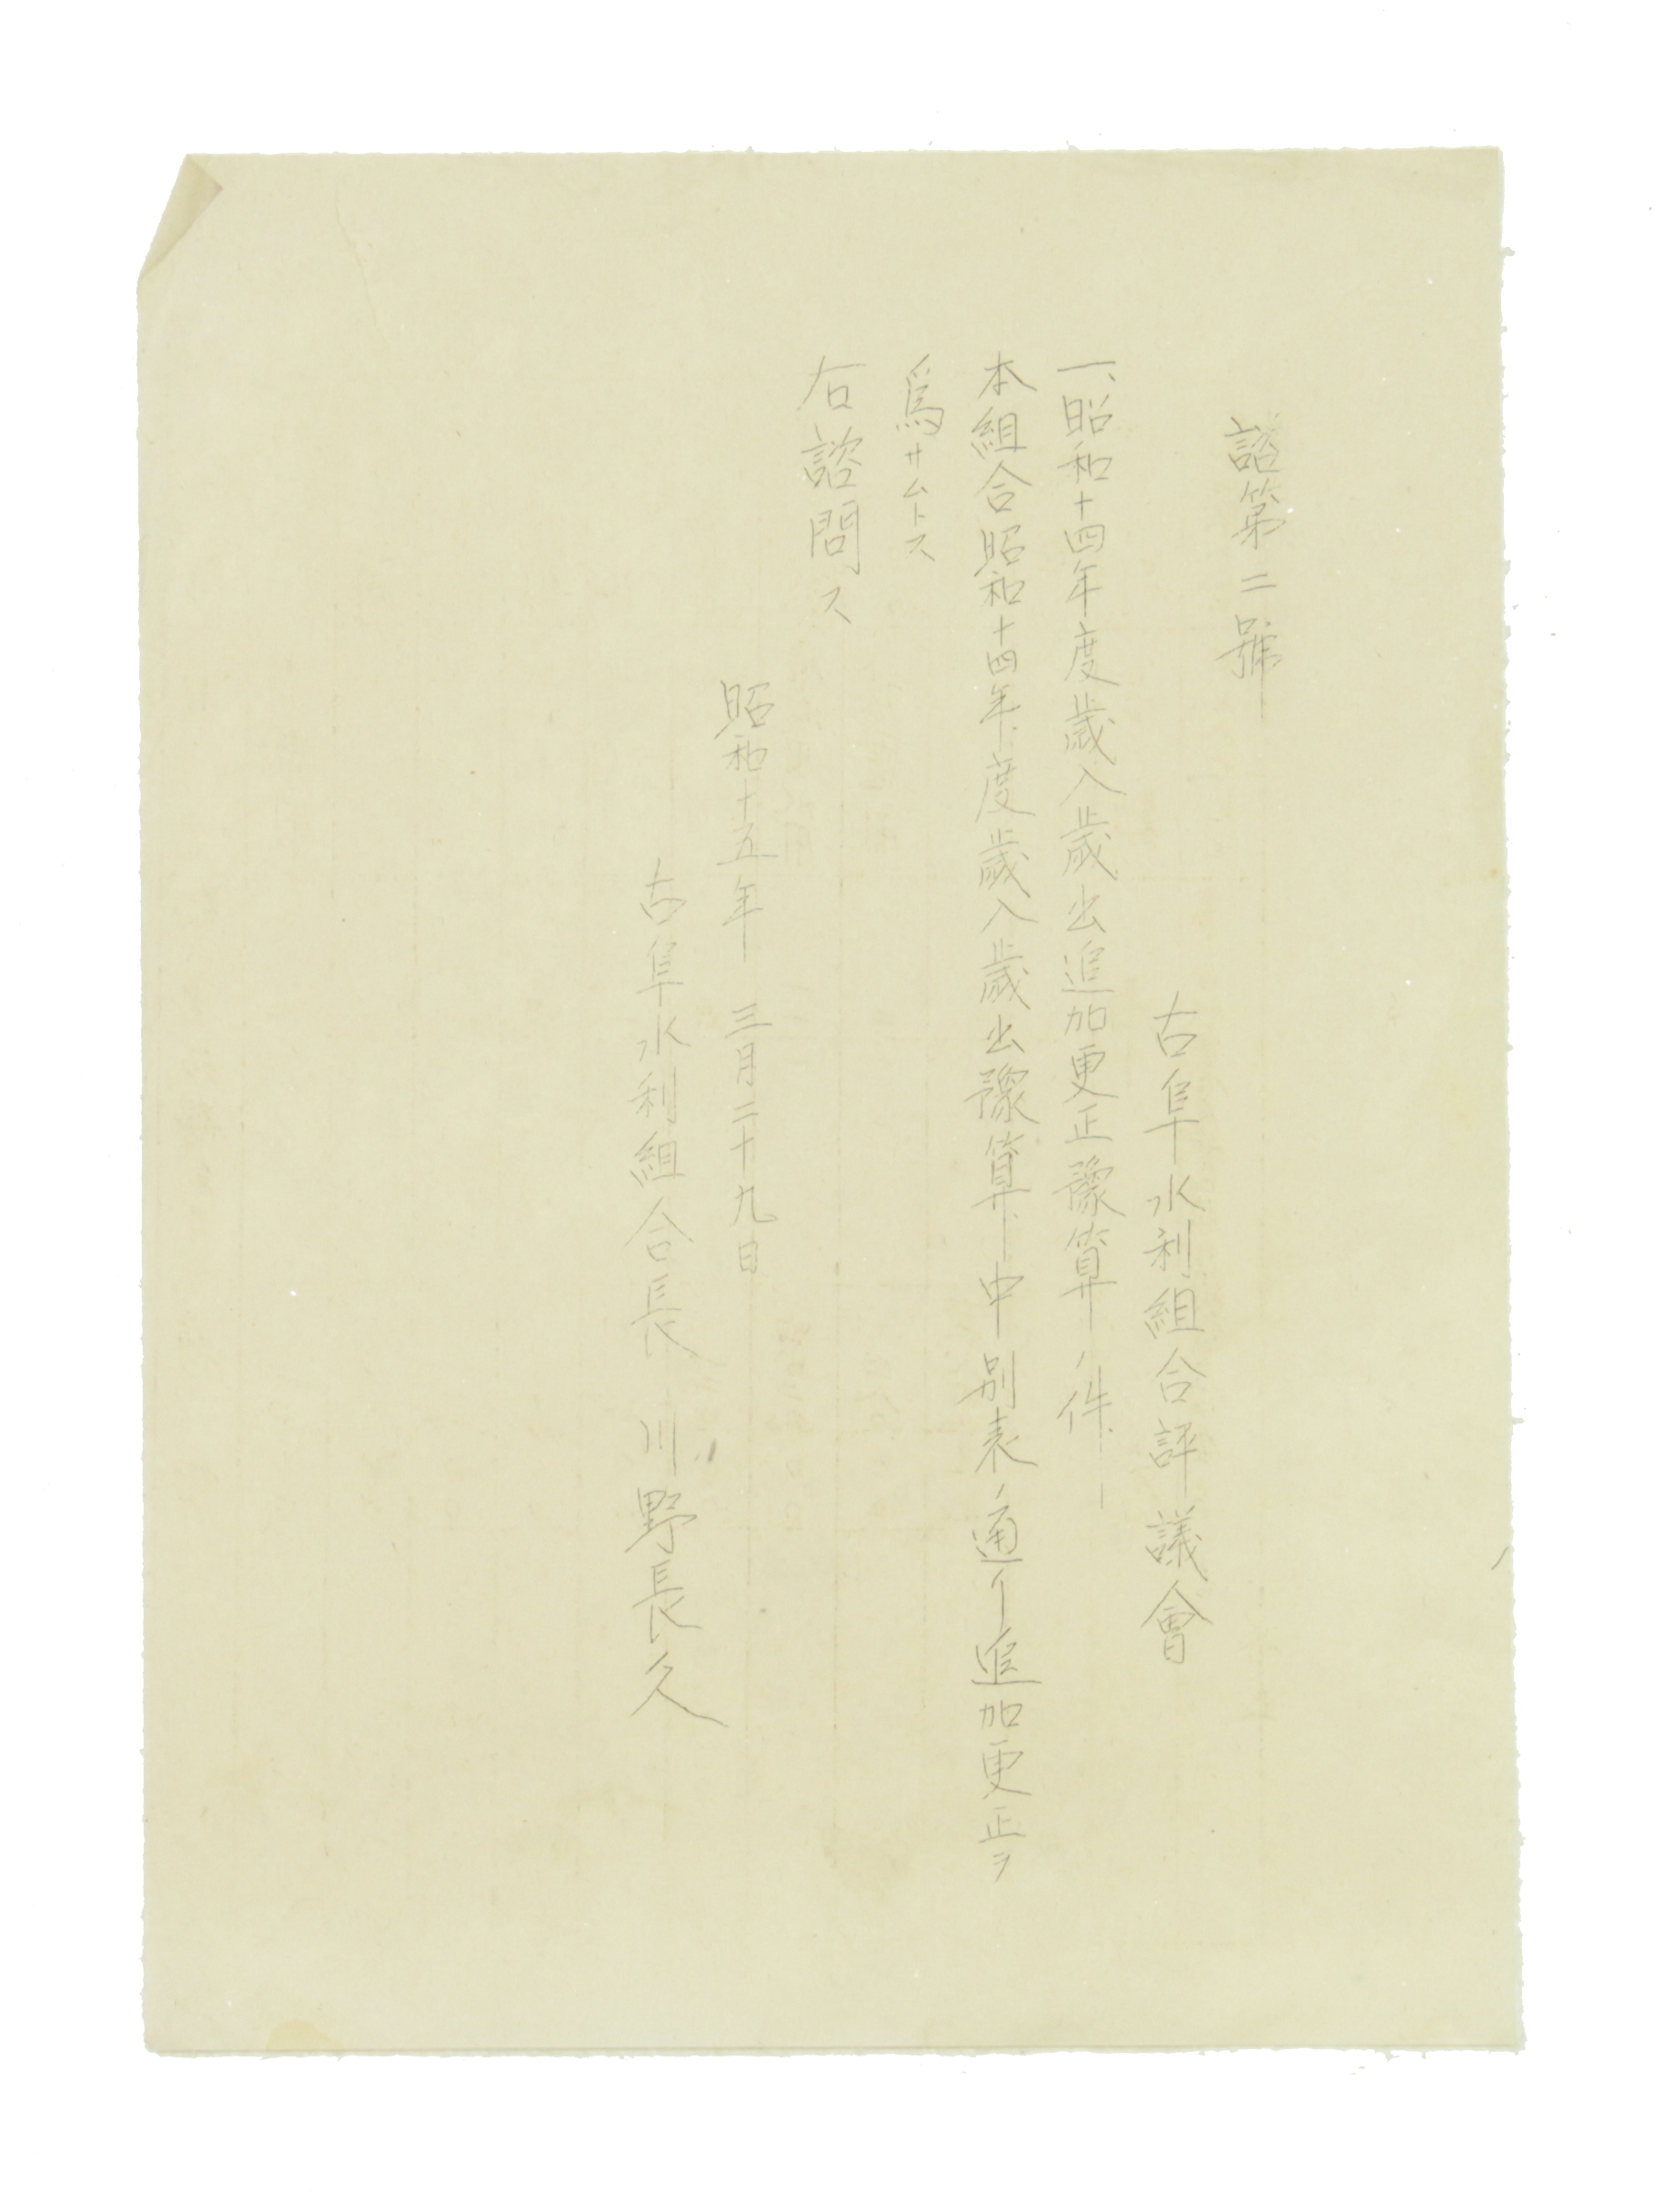 諮第二號
古阜水利組合評議會
一、昭和十四年度歲入歲出追加更正豫算ノ件
本組合昭和十四年度歲入歲出豫算中別表ノ通リ追加更正ヲ
爲サムトス
右諮問ス
昭和十五年三月二十九日
古阜水利組合長 川野長久